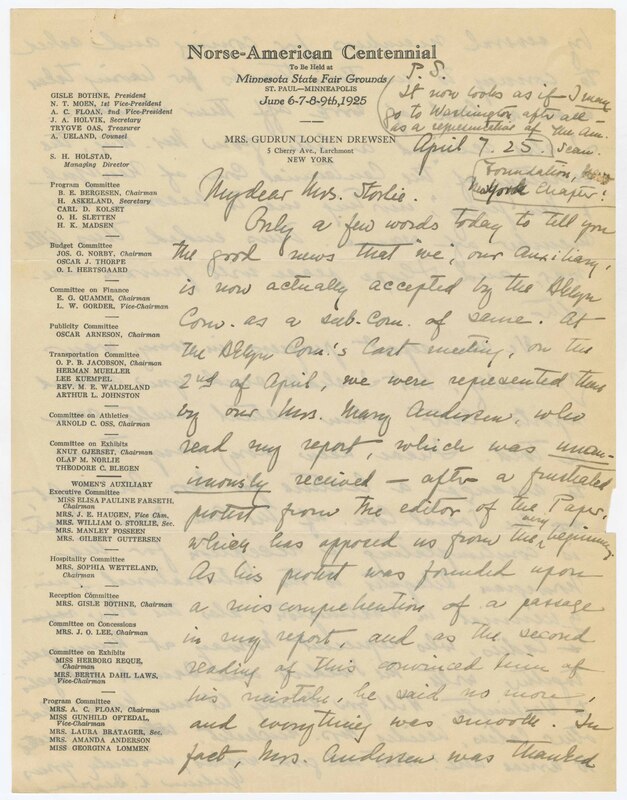 Norse-American Centennial
To Be Held at
Minnesota State Fair Grounds
ST. PAUL—MINNEAPOLIS
June 6-7-8-9th, 1925
MRS. GUDRUN LOCHEN DREWSEN
5 Cherry Ave., Larchmont
NEW YORK
P.S.
It now looks as if I may
go to Washington after all —
as a representative of the Am.
Scan.
Foundation,
New York Chapter!
GISLE BOTHNE, President
N. T. MOEN, 1st Vice-President
A. C. FLOAN, 2nd Vice-President
J. A. HOLVIK, Secretary
TRYGVE OAS, Treasurer
A. UELAND, Counsel
S. H. HOLSTAD,
Managing Director
Program Committee
B. E. BERGESEN, Chairman
H. ASKELAND, Secretary
CARL D. KOLSET
O. H. SLETTEN
H. K. MADSEN
Budget Committee
JOS. G. NORBY, Chairman
OSCAR J. THORPE
O. I. HERTSGAARD
Committee on Finance
E. G. QUAMME, Chairman
L. W. GORDER, Vice-Chairman
Publicity Committee
OSCAR ARNESON, Chairman
Transportation Committee
O. P. B. JACOBSON, Chairman
HERMAN MUELLER
LEE KUEMPEL
REV. M. E. WALDELAND
ARTHUR L. JOHNSTON
Committee on Athletics
ARNOLD C. OSS, Chairman
Committee on Exhibits
KNUT GJERSET, Chairman
OLAF M. NORLIE
THEODORE C. BLEGEN
WOMEN'S AUXILIARY
Executive Committee
MISS ELISA PAULINE FARSETH,
Chairman
MRS. J. E. HAUGEN, Vice Chm.
MRS. WILLIAM O. STORLIE, Sec.
MRS. MANLEY FOSSEEN
MRS. GILBERT GUTTERSEN
Hospitality Committee
MRS. SOPHIA WETTELAND,
Chairman
Reception Committee
MRS. GISLE BOTHNE, Chairman
Committee on Concessions
MRS. J. O. LEE, Chairman
Committee on Exhibits
MISS HERBORG REQUE,
Chairman
MRS. BERTHA DAHL LAWS,
Vice-Chairman
Program Committee
MRS. A. C. FLOAN, Chairman
MISS GUNHILD OFTEDAL,
Vice-Chairman
MRS. LAURA BRATAGER, Sec.
MRS. AMANDA ANDERSON
MISS GEORGINA LOMMEN
April 7. 25.
My dear Mrs. Storlie.
Only a few words today to tell you
the good news that we, our Auxiliary,
is now actually accepted by the Bklyn
Com. as a sub-com. of same. At
the Bklyn Com.'s last meeting, on the
2nd of April, we were represented there
by our Mrs. Mary Andersen, who
read my report, which was unan-
imously received — after a frustrated
protest from the editor of the Paper,
which has opposed us from the very beginning
As his protest was founded upon
a miscomprehention of a passage
in my report, and as the second
reading of this convinced him of
his mistake, he said no more,
and everything was smooth. In
fact, Mrs. Andersen was thanked